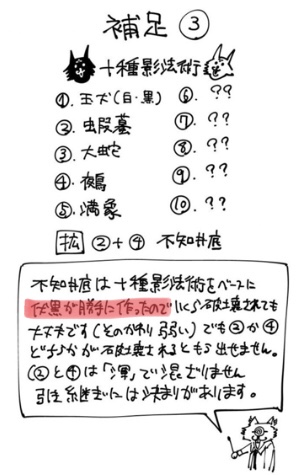 補足③
十種影法術
①. 玉犬(白・黒) ⑥. ??
②. 蝦蟇 ⑦. ??
③. 大蛇 ⑧. ??
④. 鵺 ⑨. ??
⑤. 満象 ⑩. ??
拡 ②+④ 不知井底
不知井底は十種影法術をベースに
伏黒が勝手に作ったので いくら破壊されても
大丈夫です(そのかわり弱い)でも②か④
どちらかが破壊されるともう出せません。
(②と④は「渾」で混ざりません
引き継ぎには決まりがあります。